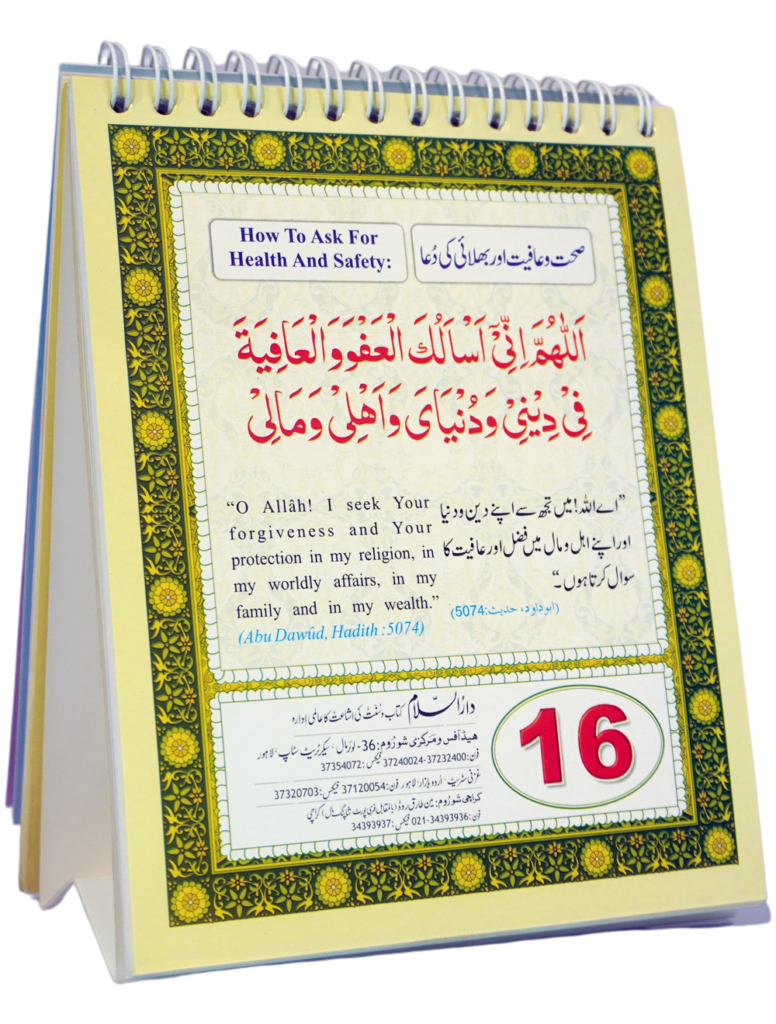 How To Ask For
Health And Safety:
صحت و عافیت اور بھلائی کی دُعا
اَللّٰهُمَّ اِنِّیْٓ اَسْاَلُكَ الْعَفْوَ وَالْعَافِیَةَ
فِیْ دِیْنِیْ وَدُنْیَایَ وَاَهْلِیْ وَمَالِیْ
“O Allâh! I seek Your
forgiveness and Your
protection in my religion, in
my worldly affairs, in my
family and in my wealth.”
(Abu Dawûd, Hadith :5074)
”اے اللہ! میں تجھ سے اپنے دین و دنیا
اور اپنے اہل و مال میں فضل اور عافیت کا
سوال کرتا ہوں۔“
(ابوداود، حدیث:5074)
دارُالسَّلام کتاب و سُنّت کی اشاعت کا عالمی ادارہ
ہیڈ آفس و مرکزی شوروم: 36- لوئرمال، سیکرٹریٹ سٹاپ، لاہور
فون: 37232400-37240024 فیکس: 37354072
غزنی سٹریٹ، اُردو بازار لاہور فون: 37120054 فیکس: 37320703
کراچی شوروم: مین طارق روڈ (بالمقابل فری پورٹ شاپنگ مال) کراچی
فون: 34393936-021 فیکس: 34393937
16